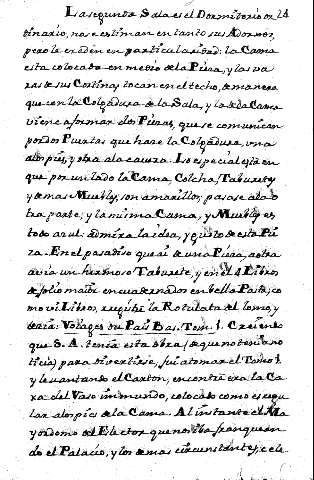 La segunda Sala es el Dormitorio or 24
dinario, no se estiman en tanto sus Adornos,
pero le exceden en particularidad: la Cama
esta colocada en medio de la Pieza, y las va
ras de sus Cortinas tocan en el techo, de manera
que con la Colgadura de la Sala, y la de la Cama
viene a formar dos Piezas, que se comunican
por dos Puertas que hace la Colgadura, una
alos pies, y otra ala caveza. Lo especial está en
que por un lado la Cama, Colcha, Taburetes
y demas Muebles, son amarillos, pasase ala o
tra parte, y la misma Cama, y Muebles es
todo azul: admira la idea, y gusto de esta Pie
za. En el pasadiso que ai de una Pieza, a otra
avia un hermoso Taburete, y en el 4 Libros
de folio maior enquadernados en bella Pasta; co
mo vi Libros, registré la Rotulata del lomo, y
decia: Voiages du Païs Bas. Tom. 1. Creiendo
que S. A. tenia esta obra (de que no tenia no
ticia) para divertirse, fui a tomar el Tomo 1.
y levantando el Carton, encontré era la Ca
xa del Vaso inmundo, colocado como es regu
lar alos pies de la Cama. Al instante el Ma
yordomo del Elector que nos iba franquean
do el Palacio, y los demas circunstantes, cele